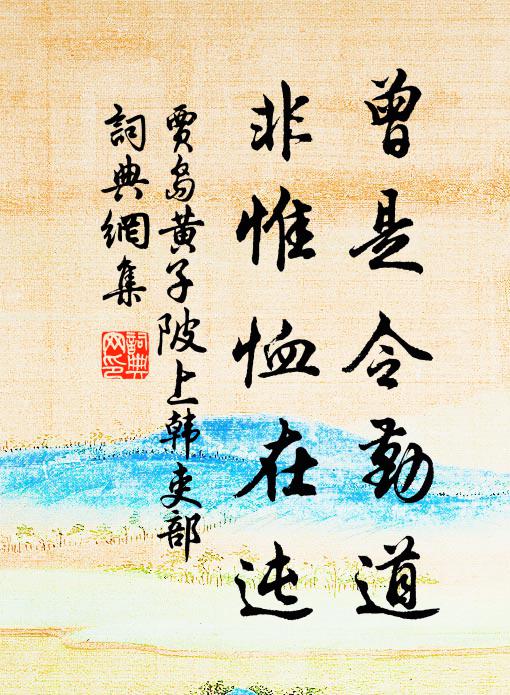 曾是令勤道
非惟恤在迍
贾岛黄子陂上韩吏部
詞典網集
詞典
网印